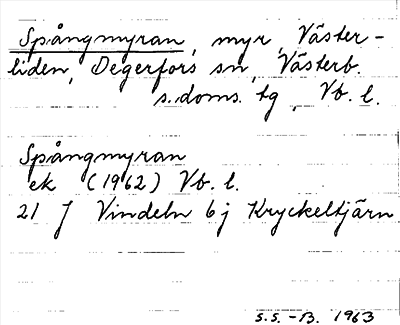 Spångmyran, myr, Väster-
liden, Degerfors sn, Västerb.
s. doms. tg, Vb. l.
Spångmyran
ek (1962) Vb. l.
21 J Vindeln 6 j Kryckeltjärn
S.S.-B. 1963